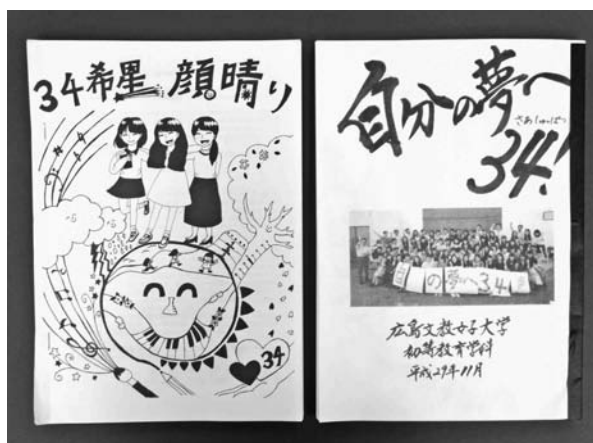 34希星 顔晴り
34
自分の夢へ
さあしゅっぱつ
34!
の夢へ34
広島文教女子大学
初等教育学科
平成29年11月